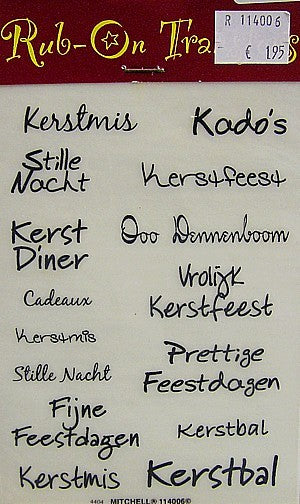 Rub-On Tra
R 114006
€ 1.95
Kerstmis
Kado's
Stille
Nacht
Kerstfeest
Kerst
Diner
Ooo Dennenboom
Cadeaux
Vrolijk
Kerstfeest
Kerstmis
Prettige
Feestdagen
Stille Nacht
Fijne
Feestdagen
Kerstbal
Kerstmis
Kerstbal
4404 MITCHELL® 114006©